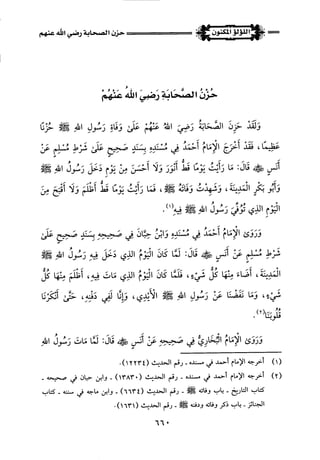 اللؤلؤ المكنون
حزن الصحابة رضي الله عنهم
حُزْنُ الصَّحَابَةِ رَضِيَ اللهُ عَنْهُمْ
وَلَقَدْ حَزِنَ الصَّحَابَةُ رَضِيَ اللهُ عَنْهُمْ عَلَى وَفَاةِ رَسُولِ اللهِ ﷺ حُزْنًا
عَظِيمًا، فَقَدْ أَخْرَجَ الْإِمَامُ أَحْمَدُ فِي مُسْنَدِهِ بِسَنَدٍ صَحِيحٍ عَلَى شَرْطِ مُسْلِمٍ عَنْ
أَنَسٍ ﷺ قَالَ: مَا رَأَيْتُ يَوْمًا قَطُّ أَنْوَرَ وَلَا أَحْسَنَ مِنْ يَوْمٍ دَخَلَ رَسُولُ اللهِ ﷺ
وَأَبُو بَكْرٍ الْمَدِينَةَ، وَشَهِدْتُ وَفَاتَهُ ﷺ، فَمَا رَأَيْتُ يَوْمًا قَطُّ أَظْلَمَ وَلَا أَقْبَحَ مِنَ
الْيَوْمِ الَّذِي تُوُفِّيَ رَسُولُ اللهِ ﷺ فِيهِ(١).
وَرَوَى الْإِمَامُ أَحْمَدُ فِي مُسْنَدِهِ وَابْنُ حِبَّانَ فِي صَحِيحِهِ بِسَنَدٍ صَحِيحٍ عَلَى
شَرْطِ مُسْلِمٍ عَنْ أَنَسٍ ﷺ قَالَ: لَمَّا كَانَ الْيَوْمُ الَّذِي دَخَلَ فِيهِ رَسُولُ اللهِ ﷺ
الْمَدِينَةَ، أَضَاءَ مِنْهَا كُلُّ شَيْءٍ، فَلَمَّا كَانَ الْيَوْمُ الَّذِي مَاتَ فِيهِ، أَظْلَمَ مِنْهَا كُلُّ
شَيْءٍ، وَمَا نَفَضْنَا عَنْ رَسُولِ اللهِ ﷺ الْأَيْدِي، وَإِنَّا لَفِي دَفْنِهِ، حَتَّى أَنْكَرْنَا
قُلُوبَنَا(٢).
وَرَوَى الْإِمَامُ الْبُخَارِيُّ فِي صَحِيحِهِ عَنْ أَنَسٍ ﷺ قَالَ: لَمَّا مَاتَ رَسُولُ اللهِ
(١) أخرجه الإمام أحمد في مسنده - رقم الحديث (١٢٢٣٤).
(٢) أخرجه الإمام أحمد في مسنده - رقم الحديث (١٣٨٣٠) - وابن حبان في صحيحه -
كتاب التاريخ - باب وفاته ﷺ - رقم الحديث (٦٦٣٤) - وابن ماجه في سننه - كتاب
الجنائز - باب ذكر وفاته ودفنه ﷺ - رقم الحديث (١٦٣١).
٦٦٠